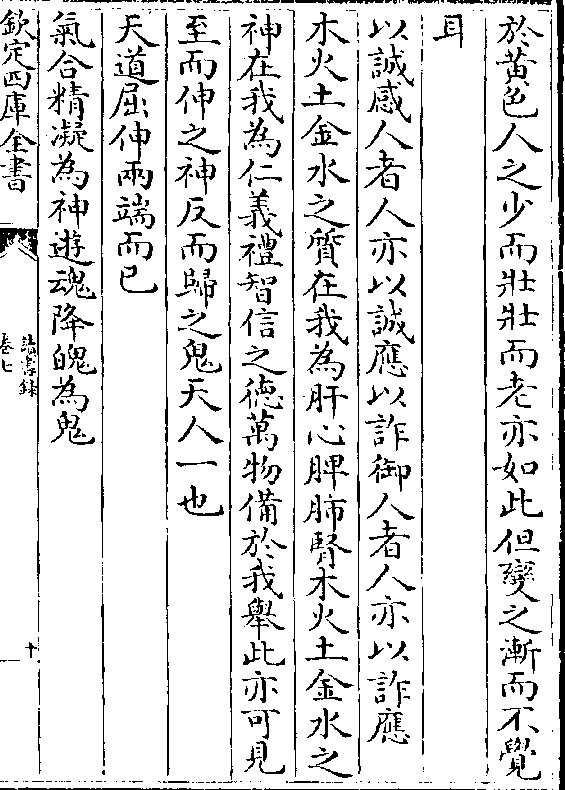 於黄色人之少而壯壯而老亦如此但變之漸而不覺
耳
以誠感人者人亦以誠應以詐御人者人亦以詐應
木火土金水之質在我為肝心脾肺腎木火土金水之
神在我為仁義禮智信之德萬物備於我舉此亦可見
至而伸之神反而歸之鬼天人一也
天道屈伸兩端而已
氣合精凝為神遊魂降魄為鬼
欽定四庫全書
讀書録
卷七
十